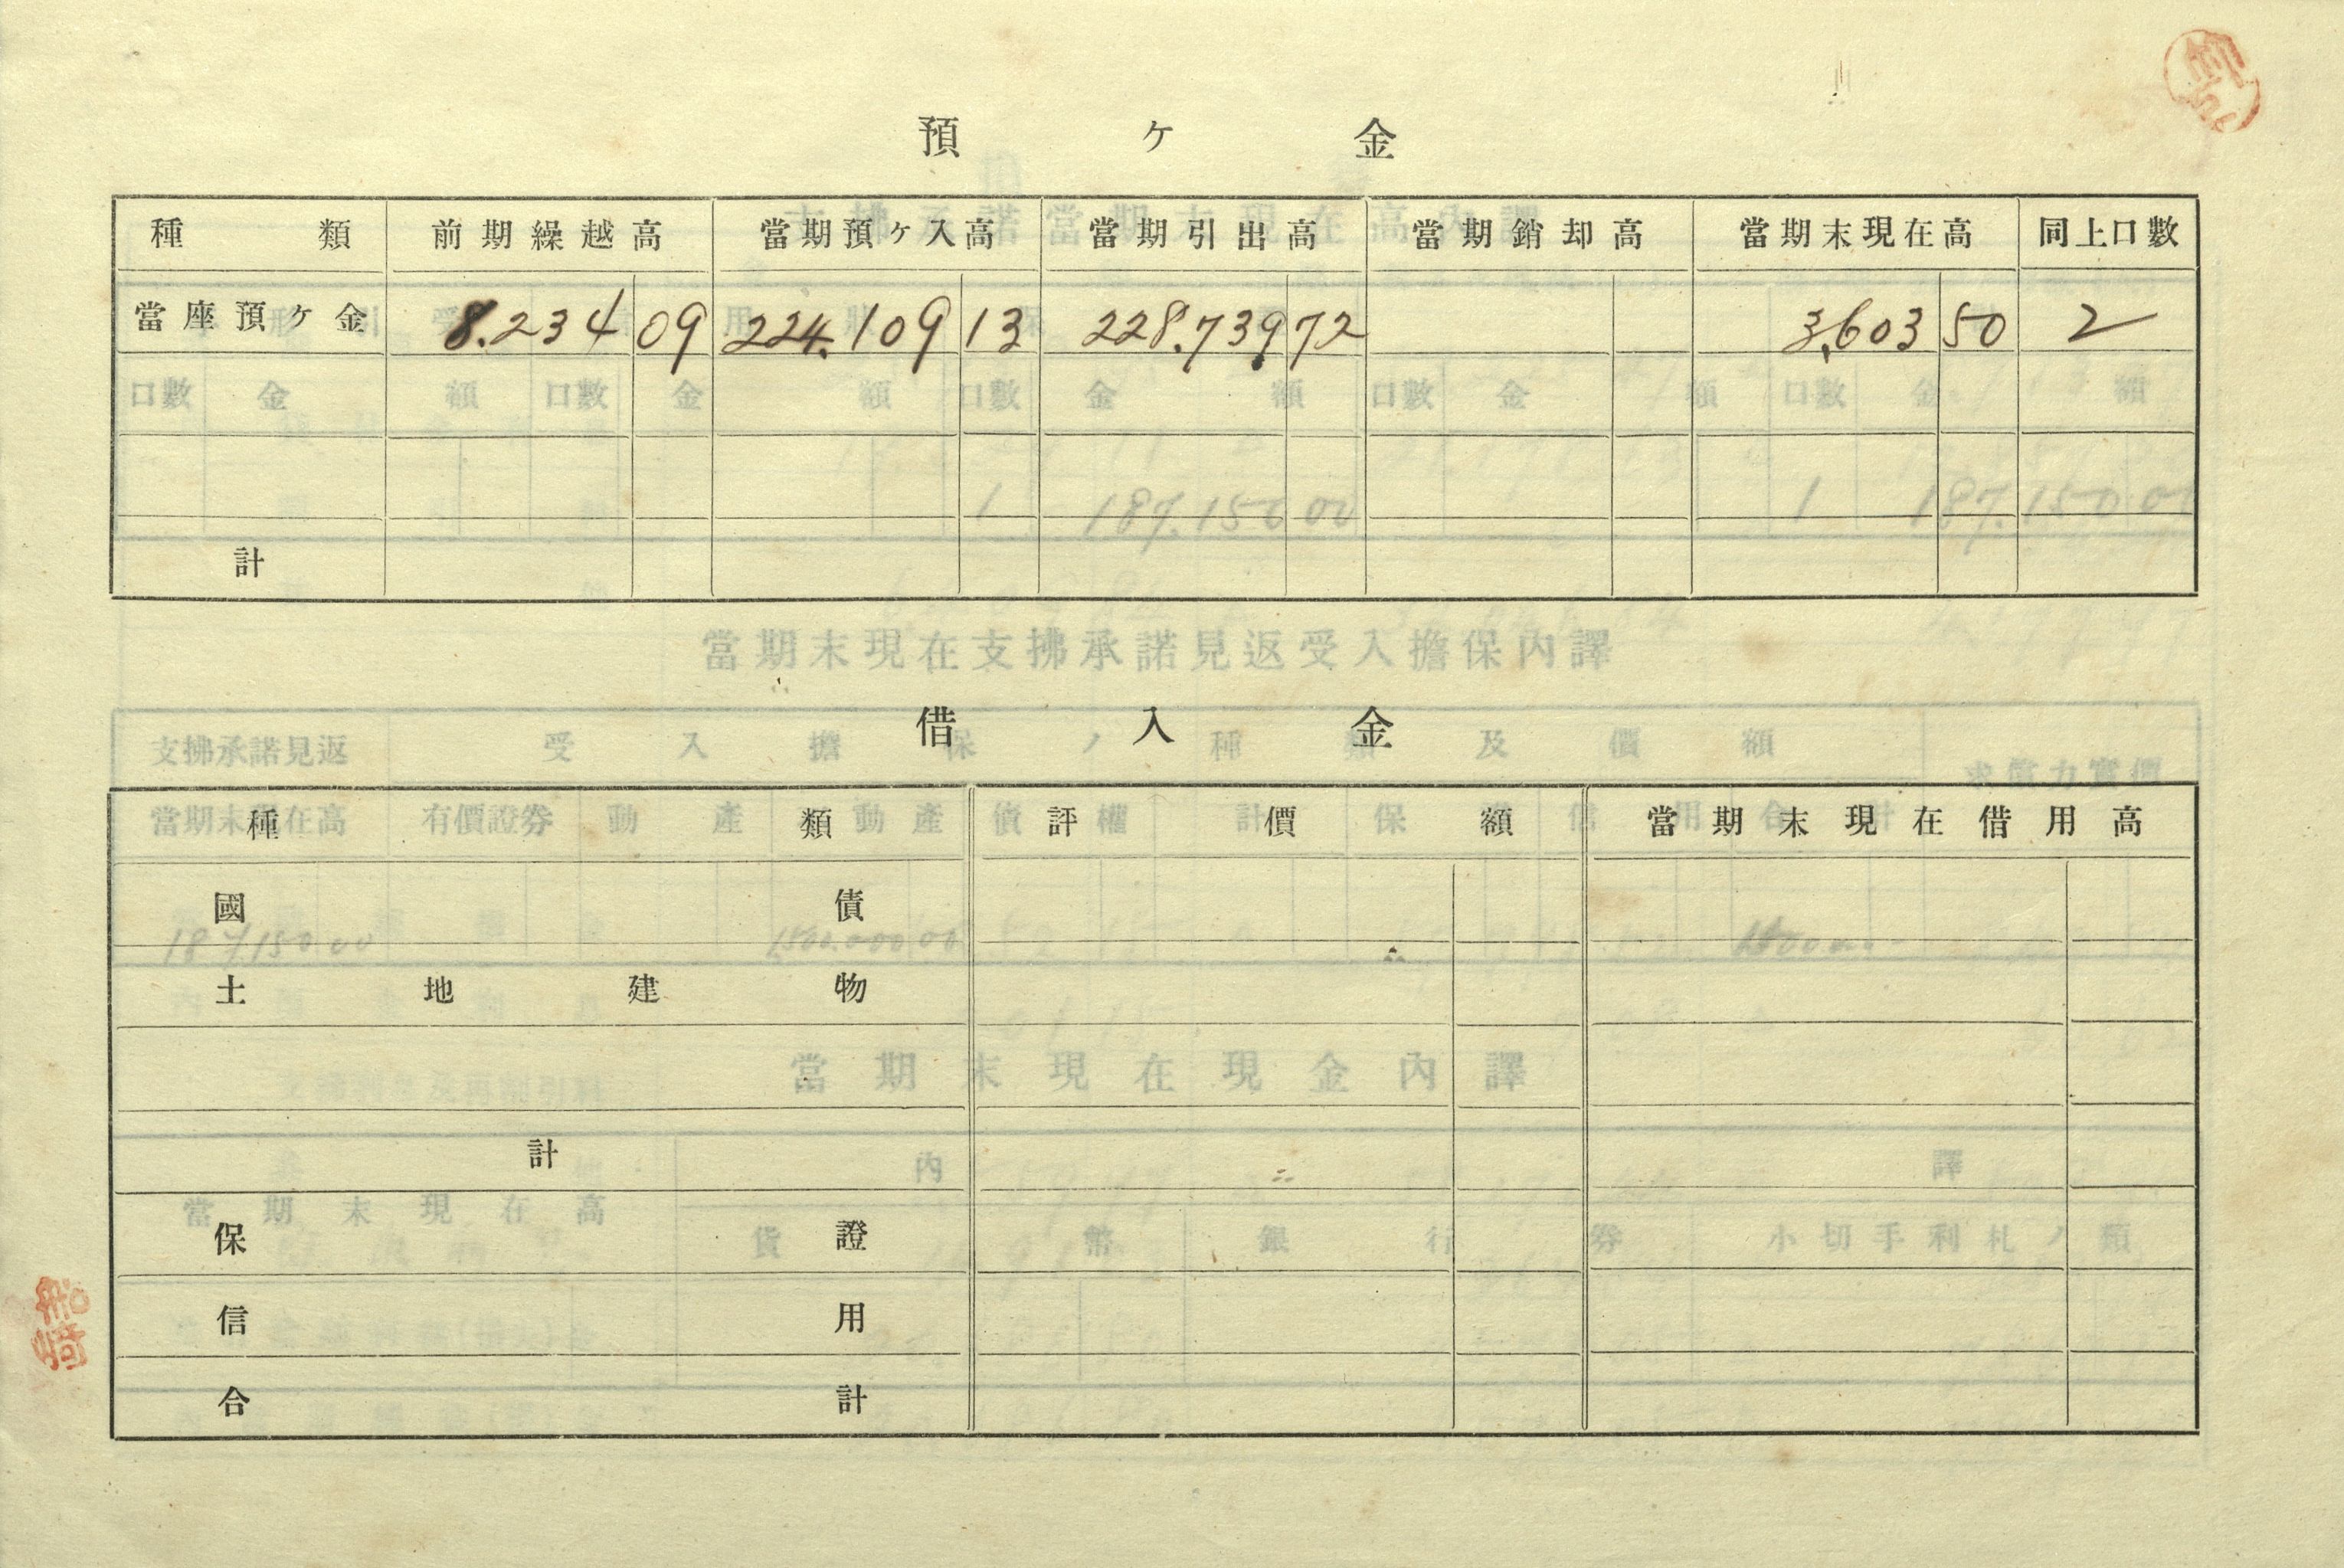 預ケ金
種類 前期繰越高 當期預ケ入高 當期引出高 當期銷却高 當期末現在高 同上口數
當座預ケ金 8.234 09 224.109 13 228.739 72 3,603 50 2
計
借入金
種類 評價額 當期末現在借用高
國債
土地建物
計
保證
信用
合計